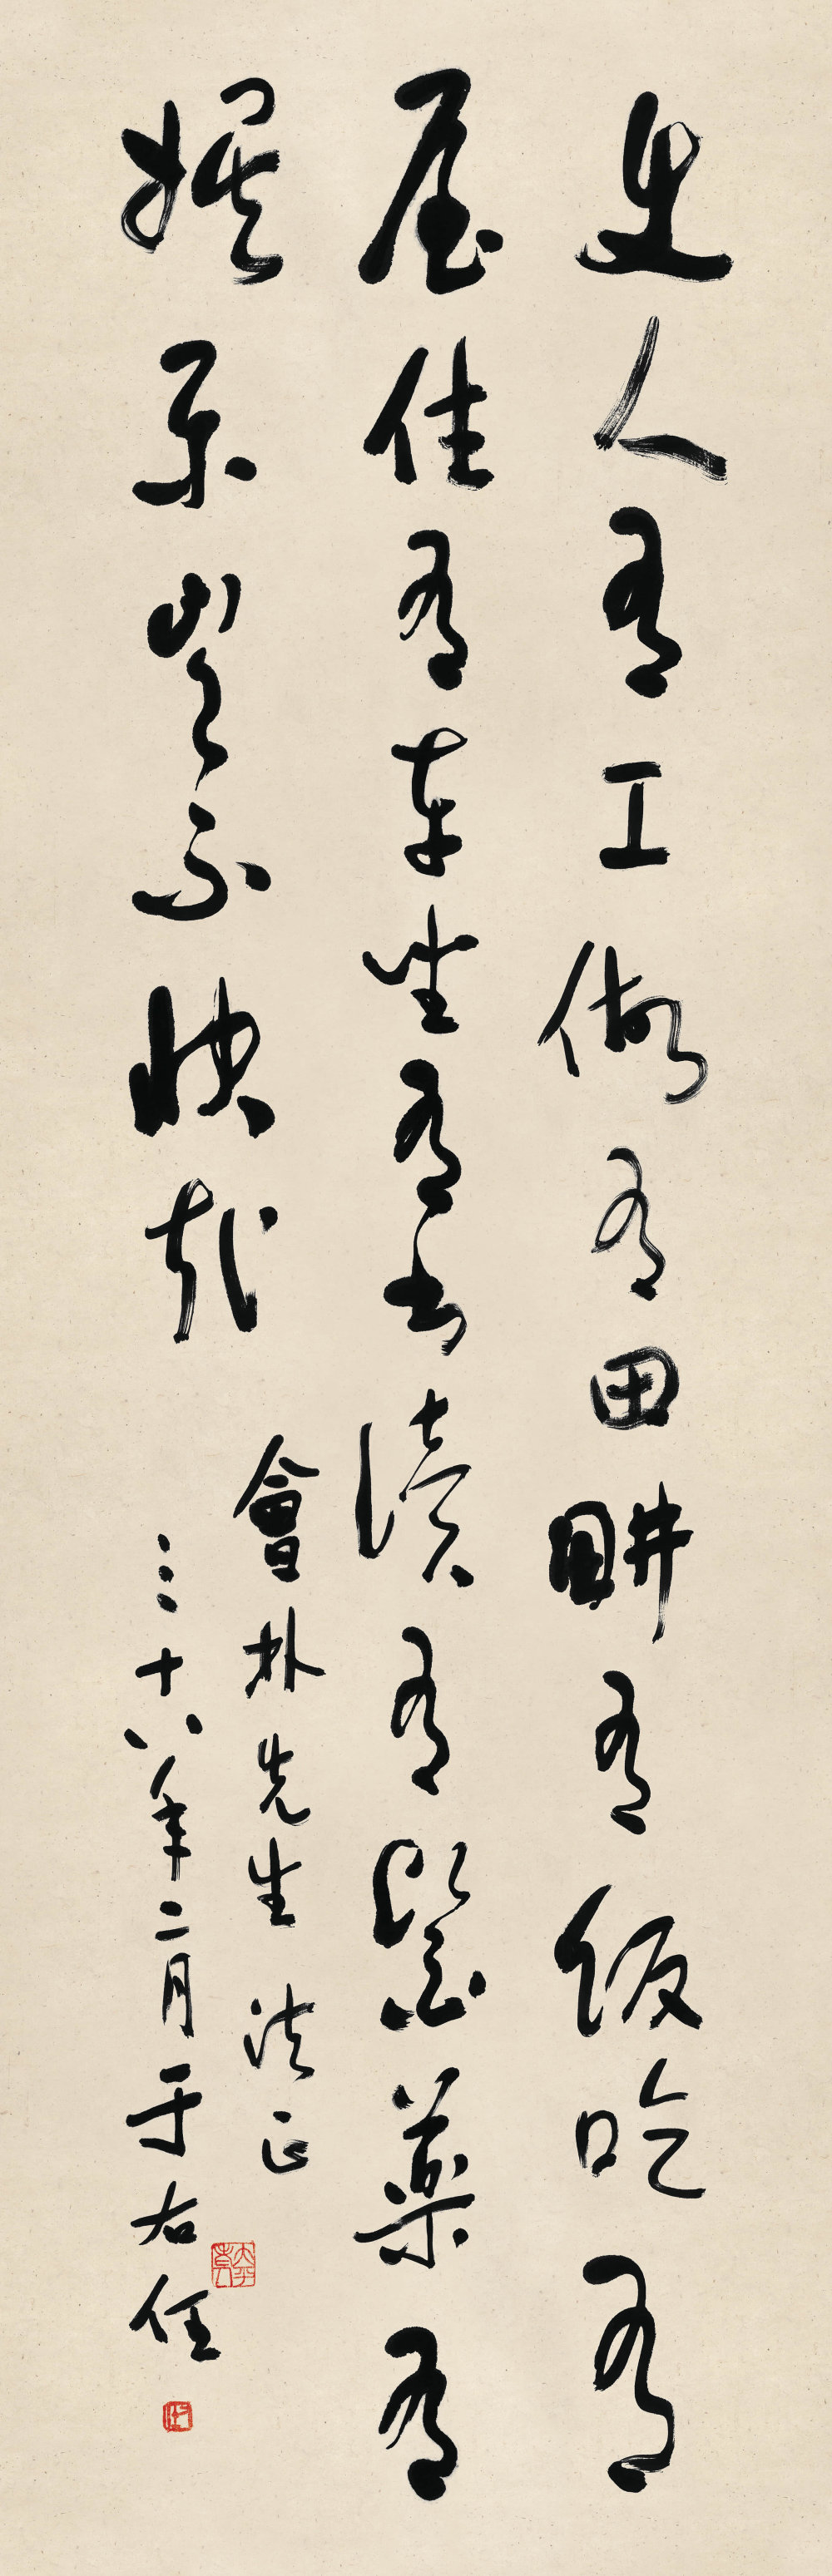 使人有工做有田畊有飯吃有
屋住有車坐有書讀有醫藥有
娛樂豈不快哉
會朴先生 法正
三十八年二月于右任